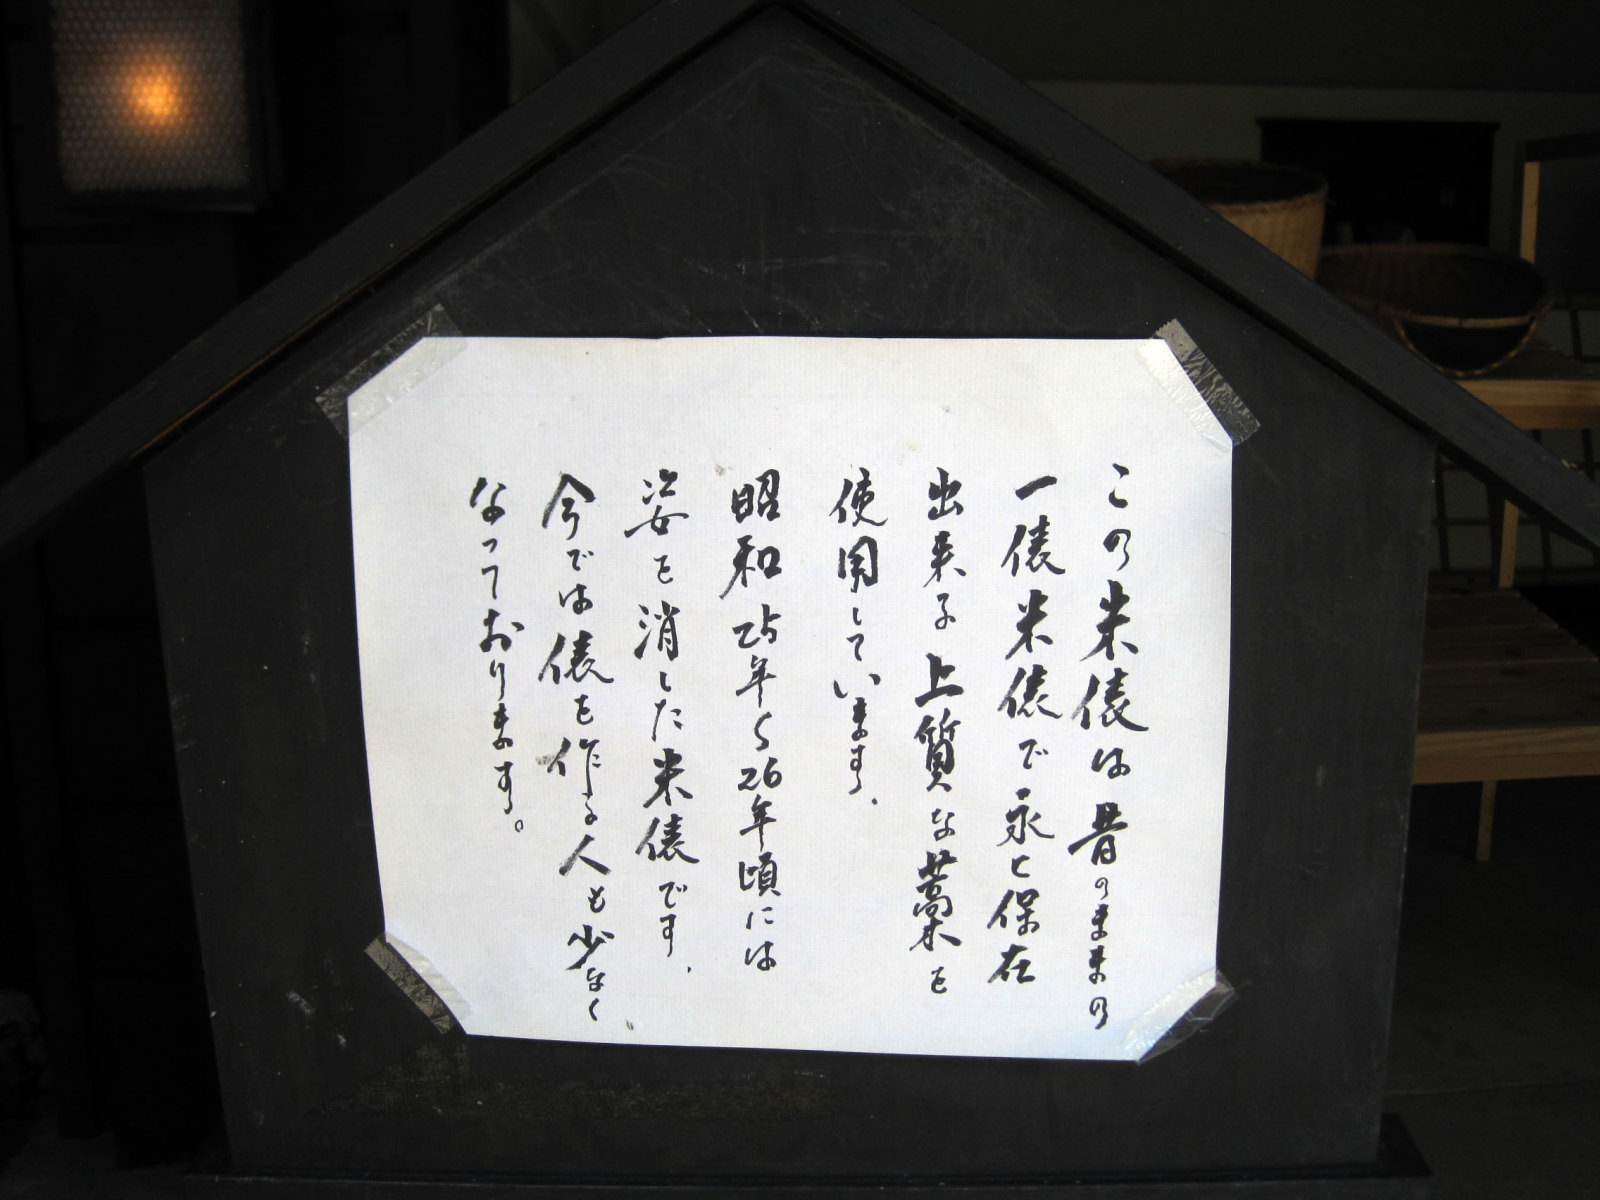 この米俵は昔のままの
一俵米俵で永く保在
出来る上質な藁を
使用しています、
昭和25年〜26年頃には
姿を消した米俵です、
今では俵を作る人も少なく
なっております。